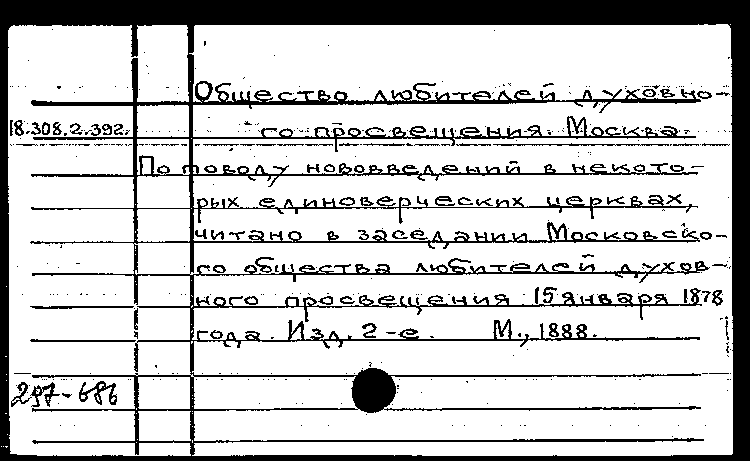 Общество любителей духовно-
18.308.2.392.
го просвещения. Москва.
По поводу нововведений в некото-
рых единоверческих церквах,
читано в заседании Московско-
го общества любителей духов-
ного просвещения 15 января 1878
года. Изд. 2-е. М., 1888.
297-686